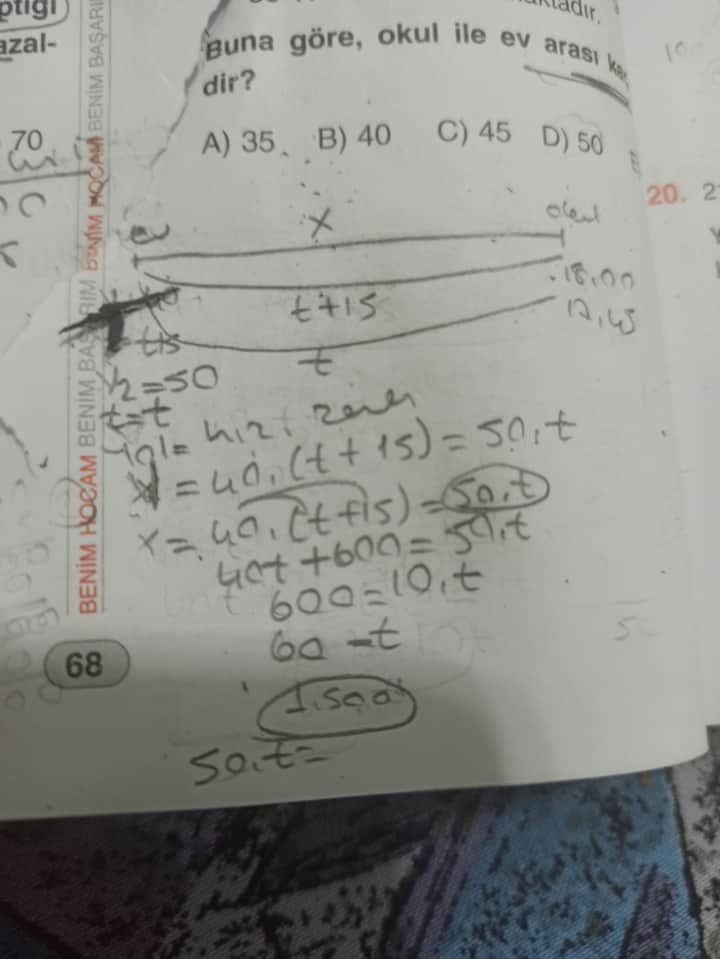 ptiği
azal-
70
Buna göre, okul ile ev arası
dir?
A) 35 B) 40 C) 45 D) 50
20. 2
ev x okul
t+15 18.00
17,45
t
t+15
V2=50
t=t
yol= hız . zaman
x = 40.(t+15) = 50.t
x = 40.(t+15) = 50.t
40t+600=50.t
600=10.t
60=t
1.saat
50.t=
68
BENİM HOCAM BENİM BAŞARIM BENİM HOCAM BENİM BAŞARI